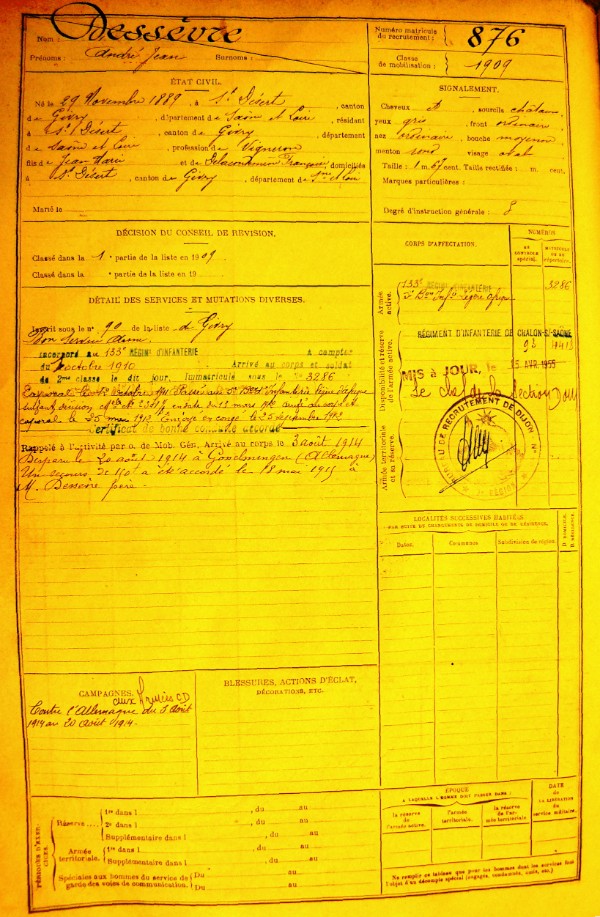 Nom : Dessèvre
Prénoms : André Jean Surnoms :
Numéro matricule du recrutement : 876
Classe de mobilisation : 1909
ÉTAT CIVIL.
Né le 29 Novembre 1889, à St Désert, canton
de Givry, département de Saône et Loire, résidant
à St Désert, canton de Givry, département
de Saône et Loire, profession de Vigneron
fils de Jean Marie et de Françoise, domiciliés
à St Désert, canton de Givry, département de S. et Loire
Marié le
SIGNALEMENT.
Cheveux sourcils châtains
yeux gris, front ordinaire
nez ordinaire, bouche moyenne
menton rond, visage oval
Taille : 1 m. 67 cent. Taille rectifiée : m. cent.
Marques particulières :
Degré d'instruction générale : 3
DÉCISION DU CONSEIL DE REVISION,
Classé dans la 1e partie de la liste en 1909
Classé dans la partie de la liste en 19
DÉTAIL DES SERVICES ET MUTATIONS DIVERSES.
Inscrit sous le n° 90 de la liste de Givry
Bon Service Armé
Incorporé au 133e RÉGIMENT D'INFANTERIE à compter
du octobre 1910 Arrivé au corps et soldat
de 2ème classe le dit jour, Immatriculé sous le n° 3286
caporal le mai 1912 Envoyé en congé le 25 décembre 1912
Certificat de bonne conduite accordé
Rappelé à l'activité par o. de Mob. Gén. Arrivé au corps le 3 août 1914
Disparu le 20 août 1914 à Gosselmingen (Allemagne)
Un secours de 150f a été accordé le 18 mai 1915 à
M. Dessèvre père
CORPS D'AFFECTATION.
NUMÉROS
AU CONTRÔLE spécial.
MATRICULE OU AU répertoire.
Armée active.
133e RÉGIMENT D'INFANTERIE 3286
Disponibilité et réserve de l'armée active.
RÉGIMENT D'INFANTERIE DE CHALON-S-SAÔNE
MIS à JOUR, le 15 AVR 1955
Armée territoriale et sa réserve.
BUREAU DE RECRUTEMENT DE DIJON
LOCALITÉS SUCCESSIVES HABITÉES
PAR SUITE DE CHANGEMENTS DE DOMICILE OU DE RÉSIDENCE.
Dates. Communes Subdivision de région. D DOMICILE. R RÉSIDENCE.
CAMPAGNES.
aux Armées CD
Contre l'Allemagne du 3 Août
1914 au 20 Août 1914
BLESSURES, ACTIONS D'ÉCLAT,
DÉCORATIONS, ETC.
PÉRIODES D'EXERCICES.
Réserve
1re dans l , du au
2e dans l , du au
Supplémentaire dans l , du au
Armée territoriale.
1re dans l , du au
Supplémentaire dans l , du au
Spéciales aux hommes du service de garde des voies de communication.
Du au
Du au
ÉPOQUE
À LAQUELLE L'HOMME DOIT PASSER DANS :
la réserve de l'armée active.
l'armée territoriale.
la réserve de l'armée territoriale
DATE de LA LIBÉRATION du service militaire.
Ne remplir ce tableau que pour les hommes dont les services font
l'objet d'un décompte spécial (engagés, condamnés, omis, etc.)